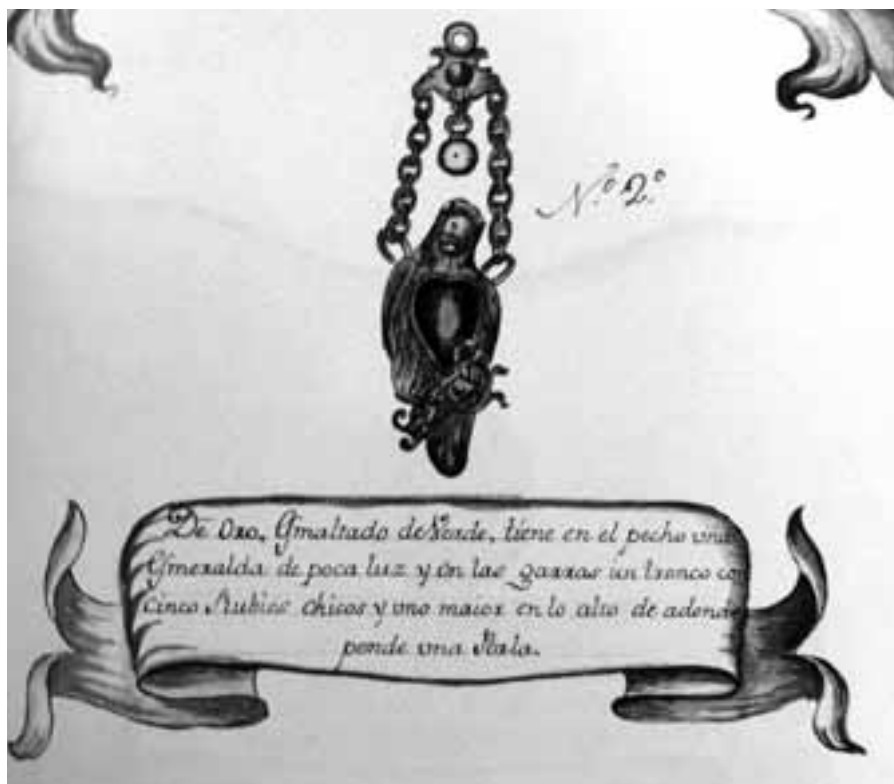 N.º 2.º
De Oro, Esmaltado de Verde, tiene en el pecho una
Esmeralda de poca luz y en las garras un tronco con
cinco Rubies chicos y uno maior en lo alto de adonde
pende una Perla.